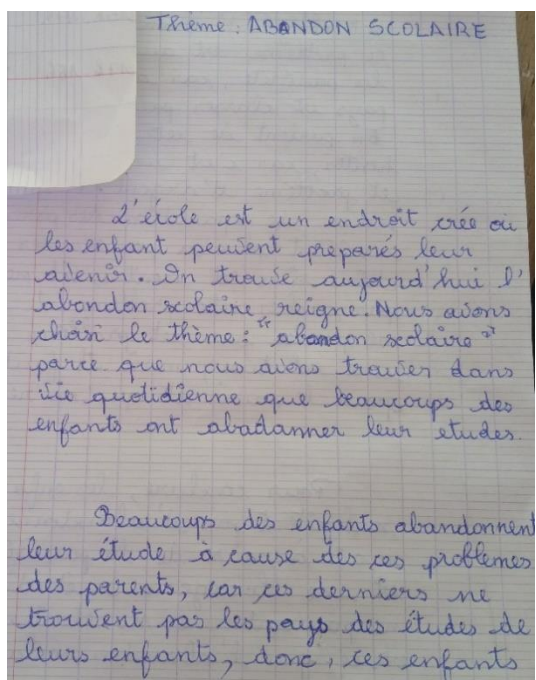 Thème : ABANDON SCOLAIRE
L'école est un endroit crée où
les enfant peuvent preparés leur
avenir. On trouve aujourd'hui l'
abondon scolaire reigne. Nous avons
choisi le thème : "abandon scolaire"
parce que nous avons trouver dans
vie quotidienne que beaucoups des
enfants ont abadanner leur etudes.
Beaucoups des enfants abandonnent
leur étude à cause des ces problèmes
des parents, car ces derniers ne
trouvent pas les pays des études de
leurs enfants, donc, ces enfants